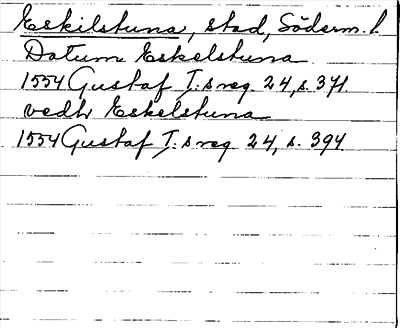 Eskilstuna, stad, Söderm. l.
Datum Eskelstuna
1554 Gustaf I:s reg. 24, s. 371.
vedh Eskelstuna
1554 Gustaf I:s reg 24, s. 394